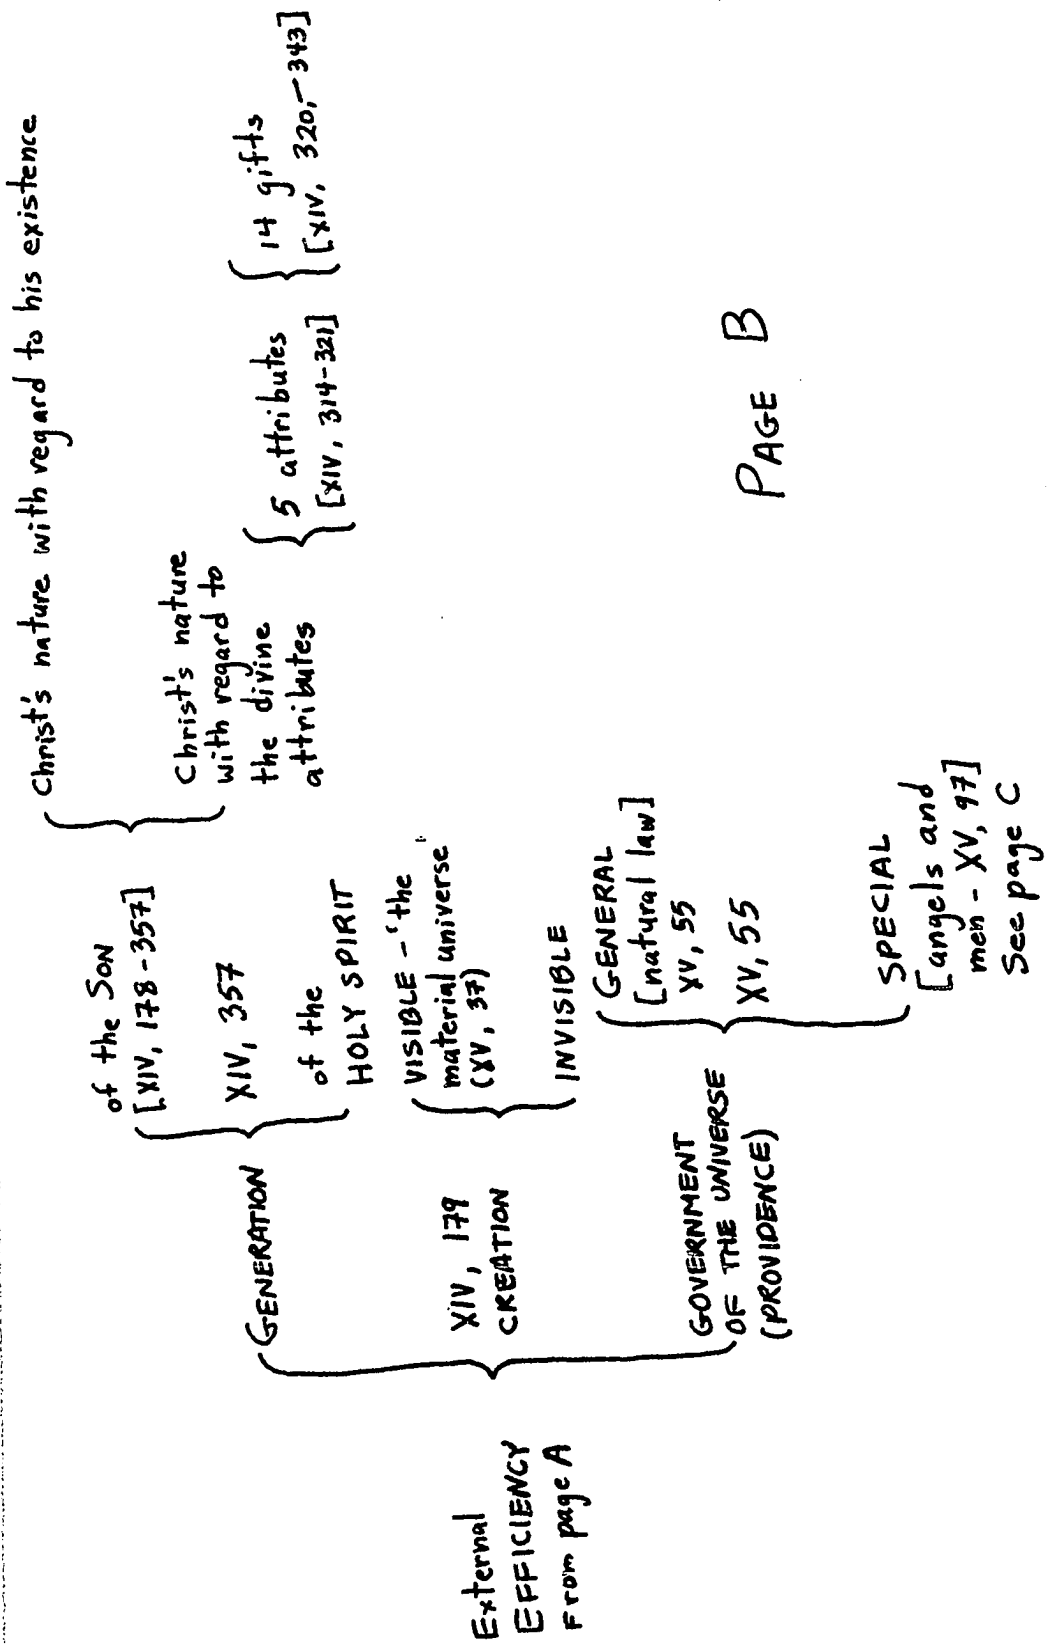 External
EFFICIENCY
From page A
GENERATION
XIV, 179
CREATION
GOVERNMENT
OF THE UNIVERSE
(PROVIDENCE)
of the SON
[XIV, 178-357]
XIV, 357
of the
HOLY SPIRIT
VISIBLE - 'the
material universe'
(XV, 37)
INVISIBLE
GENERAL
[natural law]
XV, 55
XV, 55
SPECIAL
[angels and
men - XV, 97]
See page C
Christ's nature with regard to his existence
Christ's nature
with regard to
the divine
attributes
5 attributes
[XIV, 314-321]
14 gifts
[XIV, 320,-343]
PAGE B